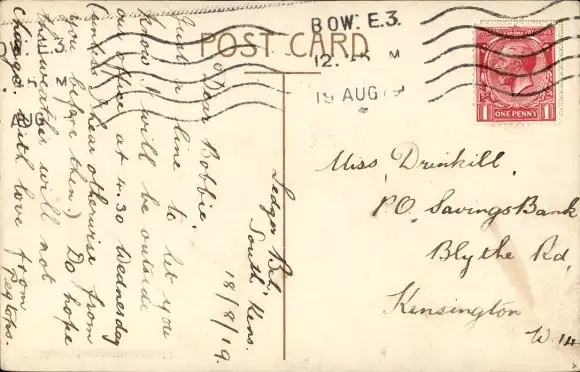 POST CARD
BOW. E.3.
12. M
19 AUG 19
BOW. E.3.
M
AUG
ONE PENNY
1 1
Ledger Bch,
South Kens.
18/8/19.
Dear Bobbie,
Just a line to let you
know I will be outside
our office at 4.30 Wednesday
(unless I hear otherwise from
you before then.) Do hope
the weather will not
change. With love from
Pegtops.
Miss Drinkill,
P.O. Savings Bank
Blythe Rd,
Kensington
W. 14